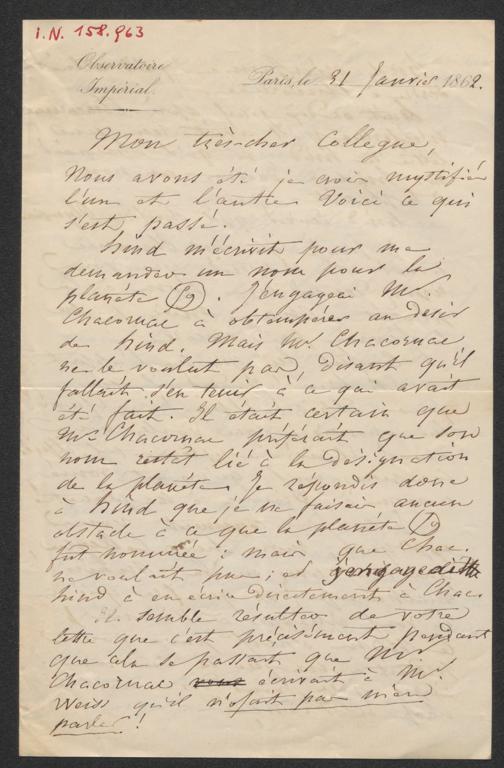 I.N. 158.963
Observatoire
Impérial
Paris, le 31 Janvier 1862.
Mon très-cher Collègue,
Nous avons été je crois mystifiés
l'un et l'autre Voici ce qui
s'est passé.
Hind m'écrivit pour me
demander un nom pour la
planète (59). J'engageai Mr.
Chacornac à obtempérer au désir
de Hind. Mais Mr. Chacornac
ne le voulut pas, disant qu'il
fallait s'en tenir à ce qui avait
été fait. Il était certain que
Mr Chacornac préférait que son
nom restât lié à la désignation
de la planète. Je répondis donc
à Hind que je ne faisais aucun
obstacle à ce que la planète (59)
fut nommée : mais que Chac.
ne voulait pas ; et j'engageai
Hind à en écrire directement à Chac.
Il semble résulter de votre
lettre que c'est précisément pendant
que cela se passait que Mr
Chacornac écrivait à Mr.
Weiss qu'il n'osait pas m'en
parler !